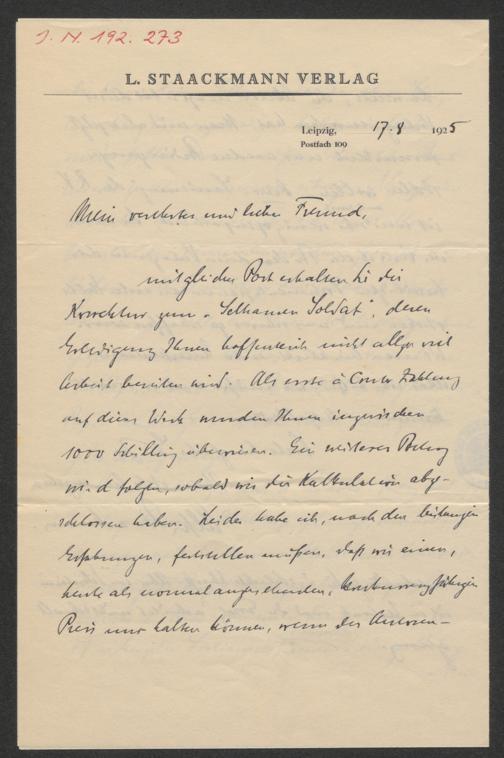 J. N. 192.273
L. STAACKMANN VERLAG
Leipzig, 17.8 1925
Postfach 109
Mein verehrter und lieber Freund,
mit gleicher Post erhalten Sie die
Korrektur zum „Seltsamen Soldat", deren
Erledigung Ihnen hoffentlich nicht allzu viel
Arbeit bereiten wird. Als erste à Conto Zahlung
auf dieses Werk wurden Ihnen inzwischen
1000 Schilling überwiesen. Ein weiterer Betrag
wird folgen, sobald wir die Kalkulation abge-
schlossen haben. Leider habe ich, nach den bisherigen
Erfahrungen, feststellen müssen, daß wir einen,
heute als normal anzusehenden, konkurrenzfähigen
Preis nur halten können, wenn der Autoren-